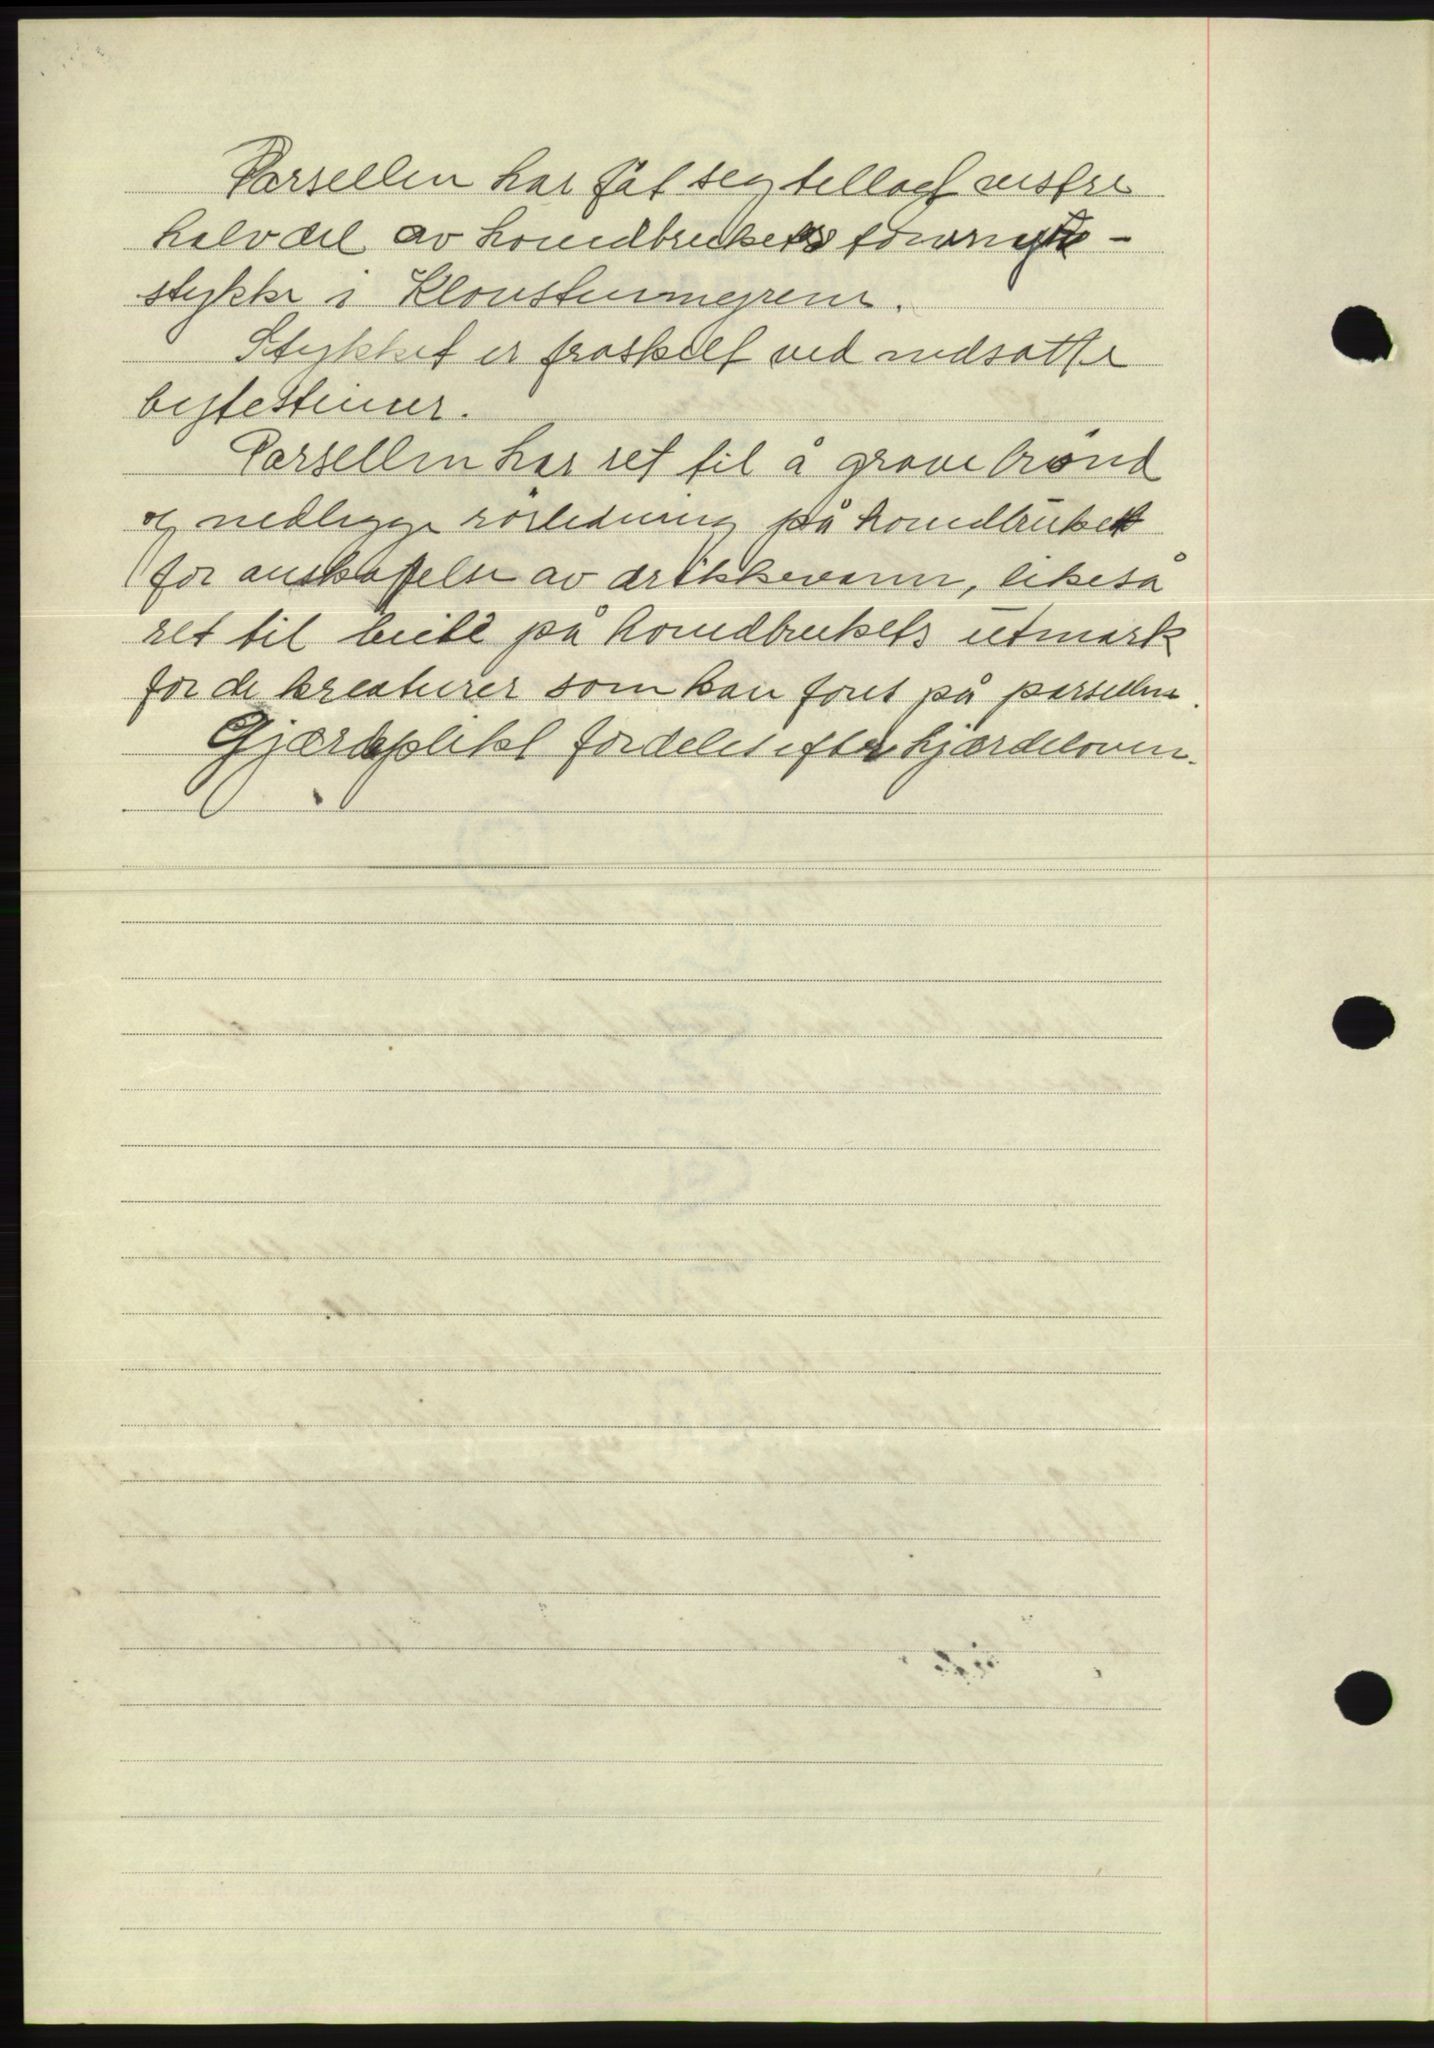 Parsellen har fåt seg tillagt vestre
halvdel av hovedbrukets torvmyr-
stykke i Klostermyrene.
Stykket er fraskelt ved nedsatte
bytesteiner.
Parsellen har ret til å grave brønd
og nedlegge rörledning på hovedbruket
for anskaffelse av drikkevann, likeså
ret til beite på hovedbrukets utmark
for de kreaturer som kan fores på parsellen.
Gjærdeplikt fordeles efter gjærdeloven.